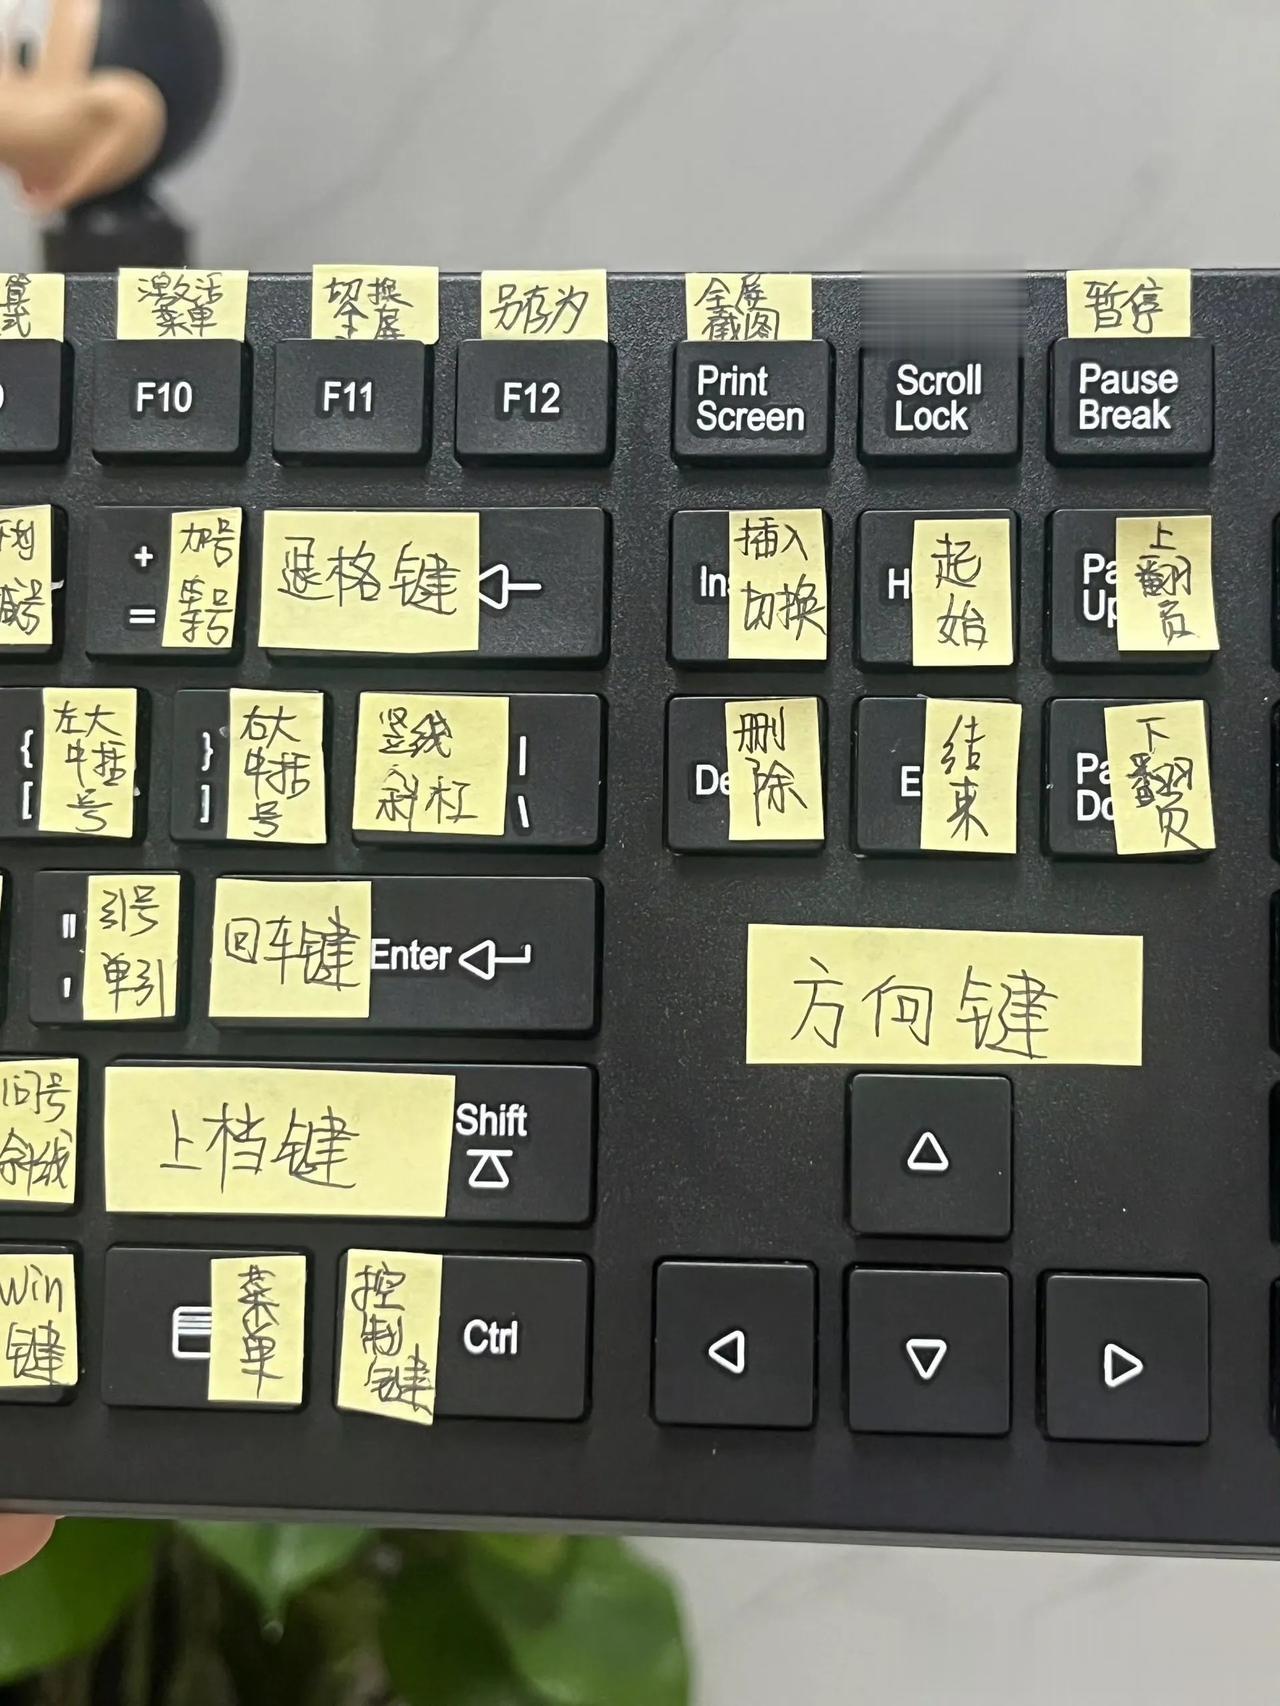 激活
菜单
切换
全屏
另存为
全屏
截图
暂停
F10
F11
F12
Print
Screen
Scroll
Lock
Pause
Break
减号
+
=
加号
等号
退格键
In
插入
切换
H
起
始
Pa
Up
上
翻
页
{
[
左大
中括
号
}
]
右大
中括
号
竖线
斜杠
|
\
De
删
除
E
结
束
Pa
Do
下
翻
页
"
'
引号
单引
回车键
Enter
方向键
问号
斜线
上档键
Shift
Win
键
菜
单
控
制
键
Ctrl